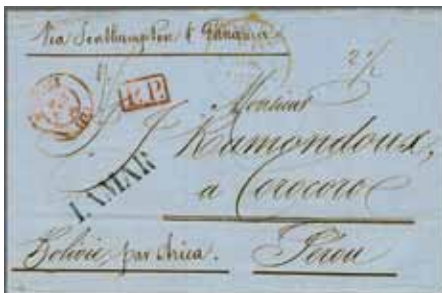 Via Southampton & Panama
2/
P.P.
Monsieur
J. Ramondoux,
LAMAR
a Corocoro
Bolivie par Arica. Pérou